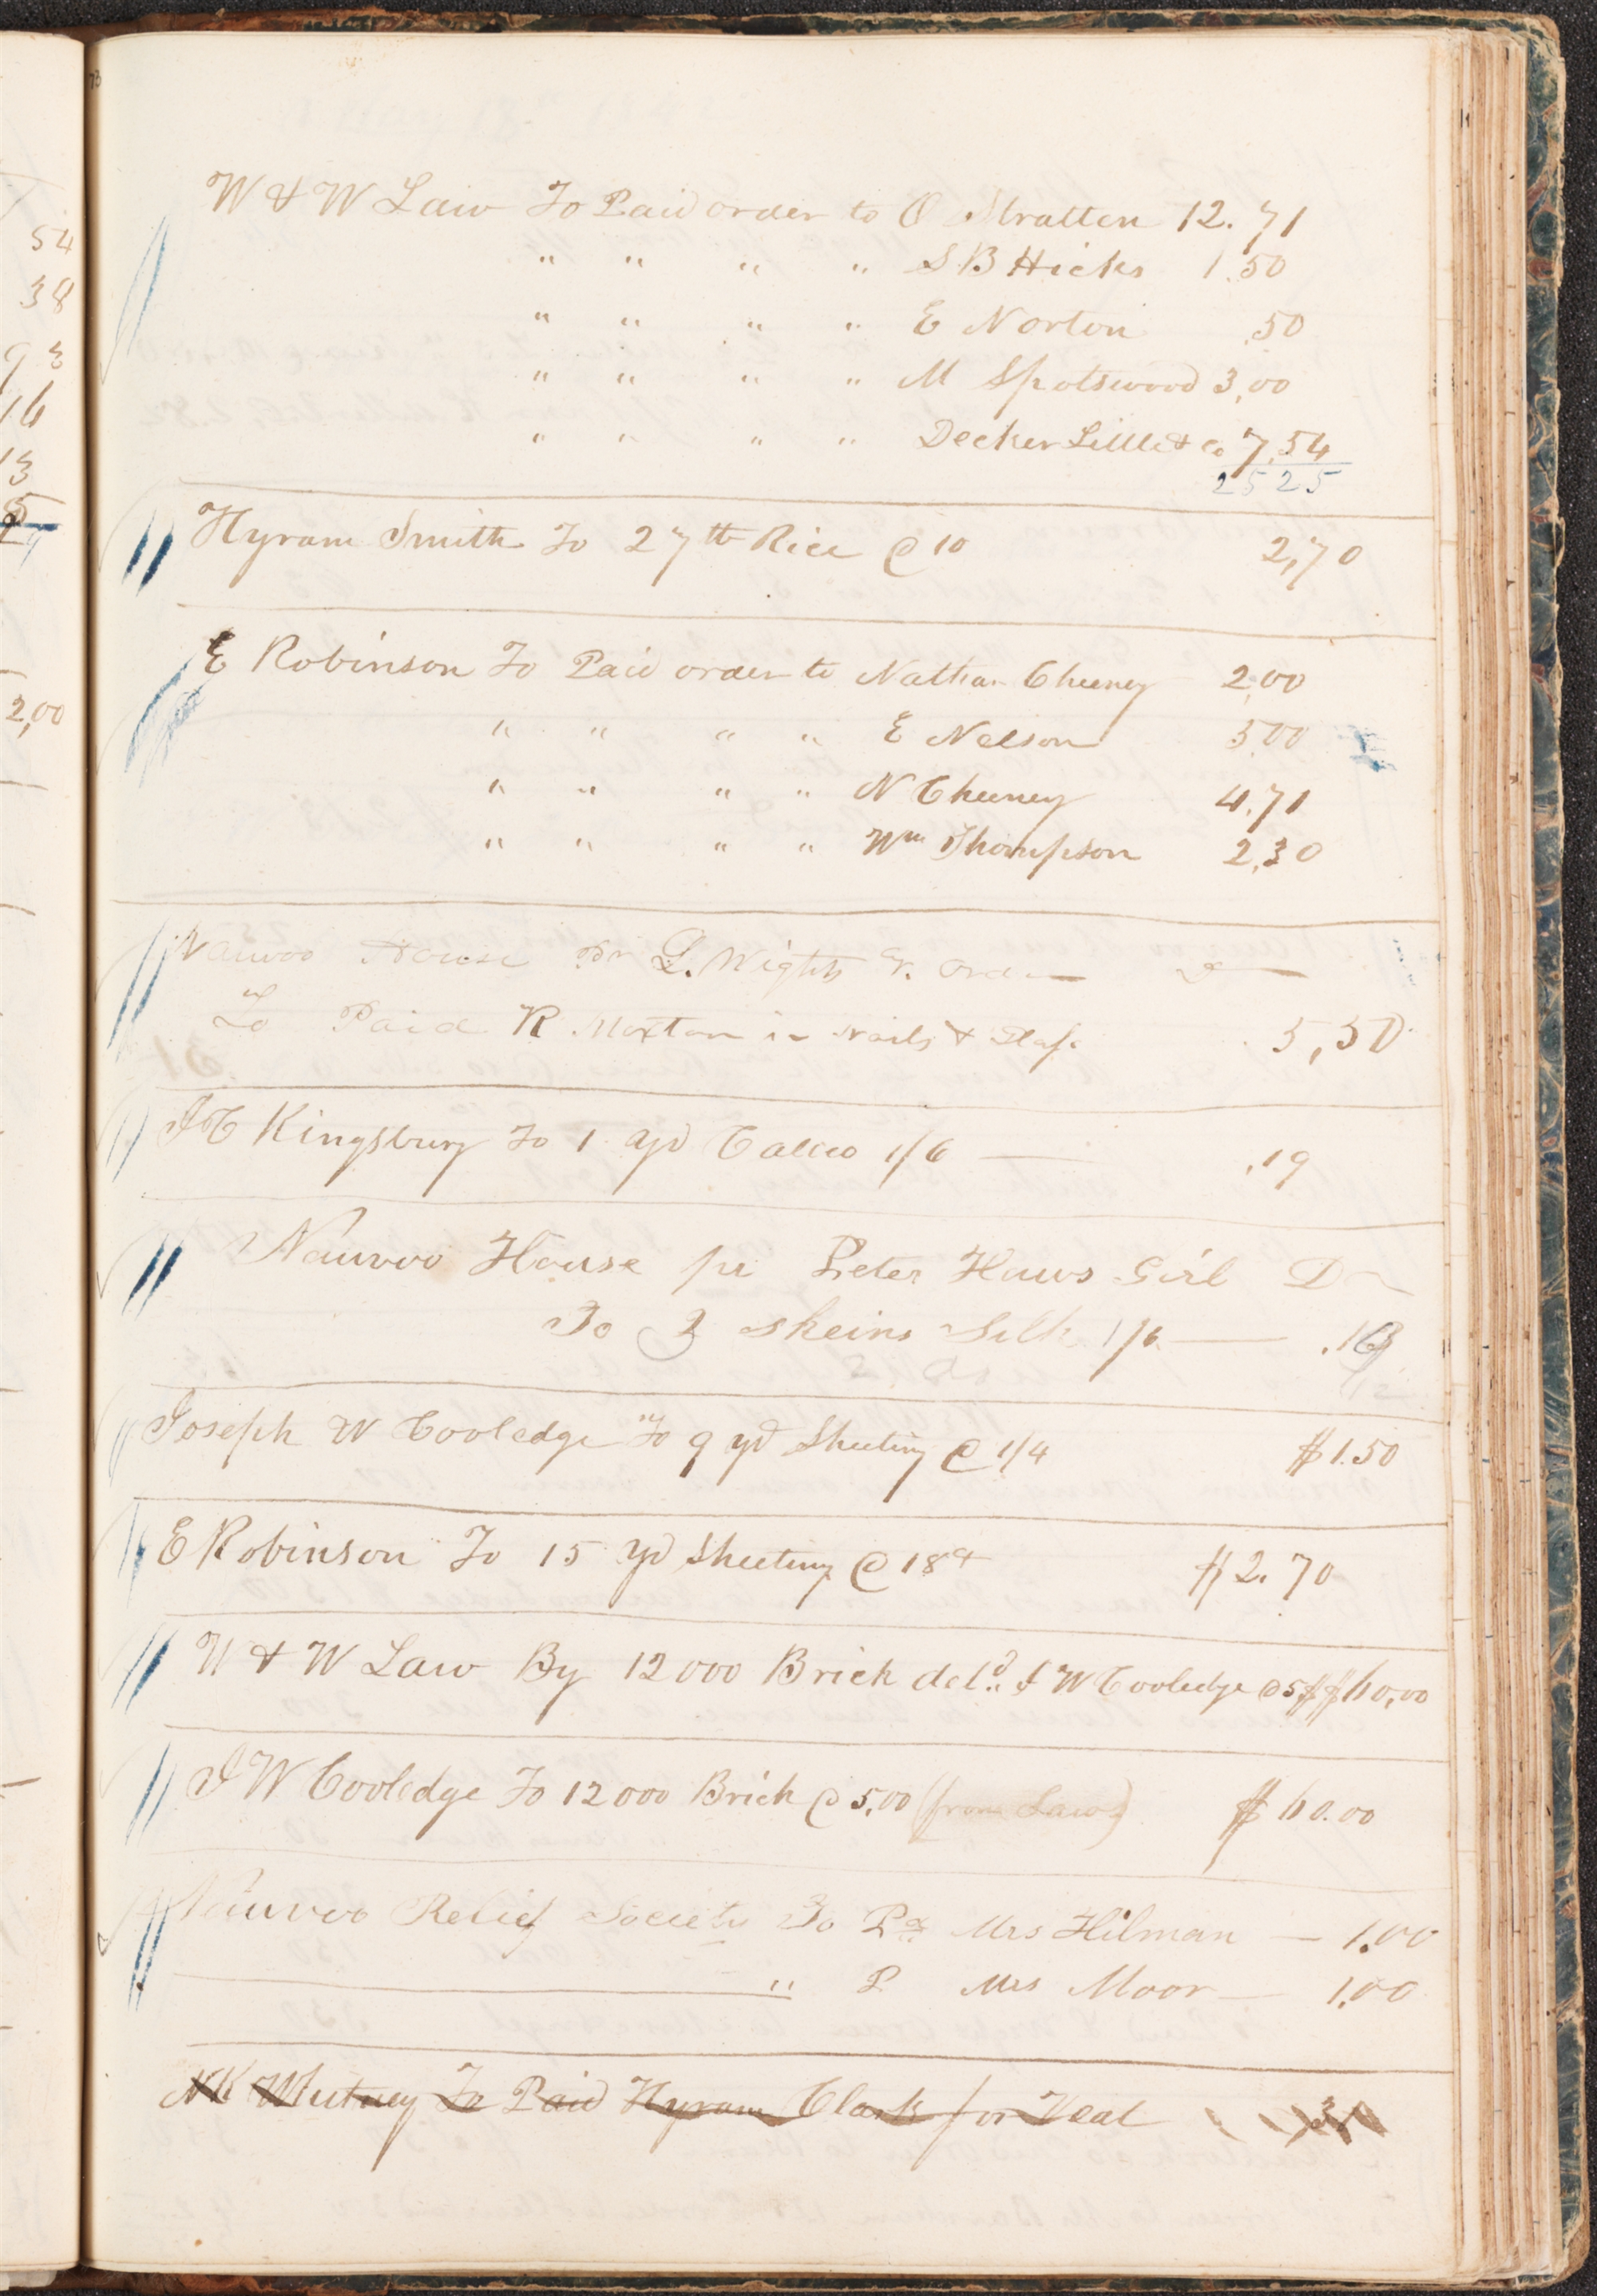 54
38
93
16
13
2,00
73
W & W Law To Paid order to O Stratten 12.71
" " " " S.B Hicks 1.50
" " " " E Norton .50
" " " " M Spotswood 3,00
" " " " Decker Little & Co 7.54
25 25
Hyram Smith To 27 lb Rice @ 10 2,70
E Robinson To Paid order to Nathan Cheeney 2,00
" " " " E Nelson 5.00
" " " " N Cheeney 4.71
" " " " Wm Thompson 2,30
Nauvoo House Dr L. Wights order
To Paid R Moxton in Nails & 5,50
J C Kingsbury To 1 yd Calico 1/6 — .19
Nauvoo House pr Peter Haws Girl Dr
To 3 skeins Silk 1/6 — .19
Joseph W Cooledge To 9 yd Sheeting @ 1/4 $1.50
E Robinson To 15 yd Sheeting @ 18 cts $2.70
W & W Law By 12000 Brick deld. J W Cooledge @ 5$ $60,00
J W Cooledge To 12000 Brick @ 5,00 (from Laws) $60.00
Nauvoo Relief Society To Pd Mrs Hilman — 1.00
" P Mrs Moor — 1.00
N K Whitney To Paid Hyram Clark for Veal